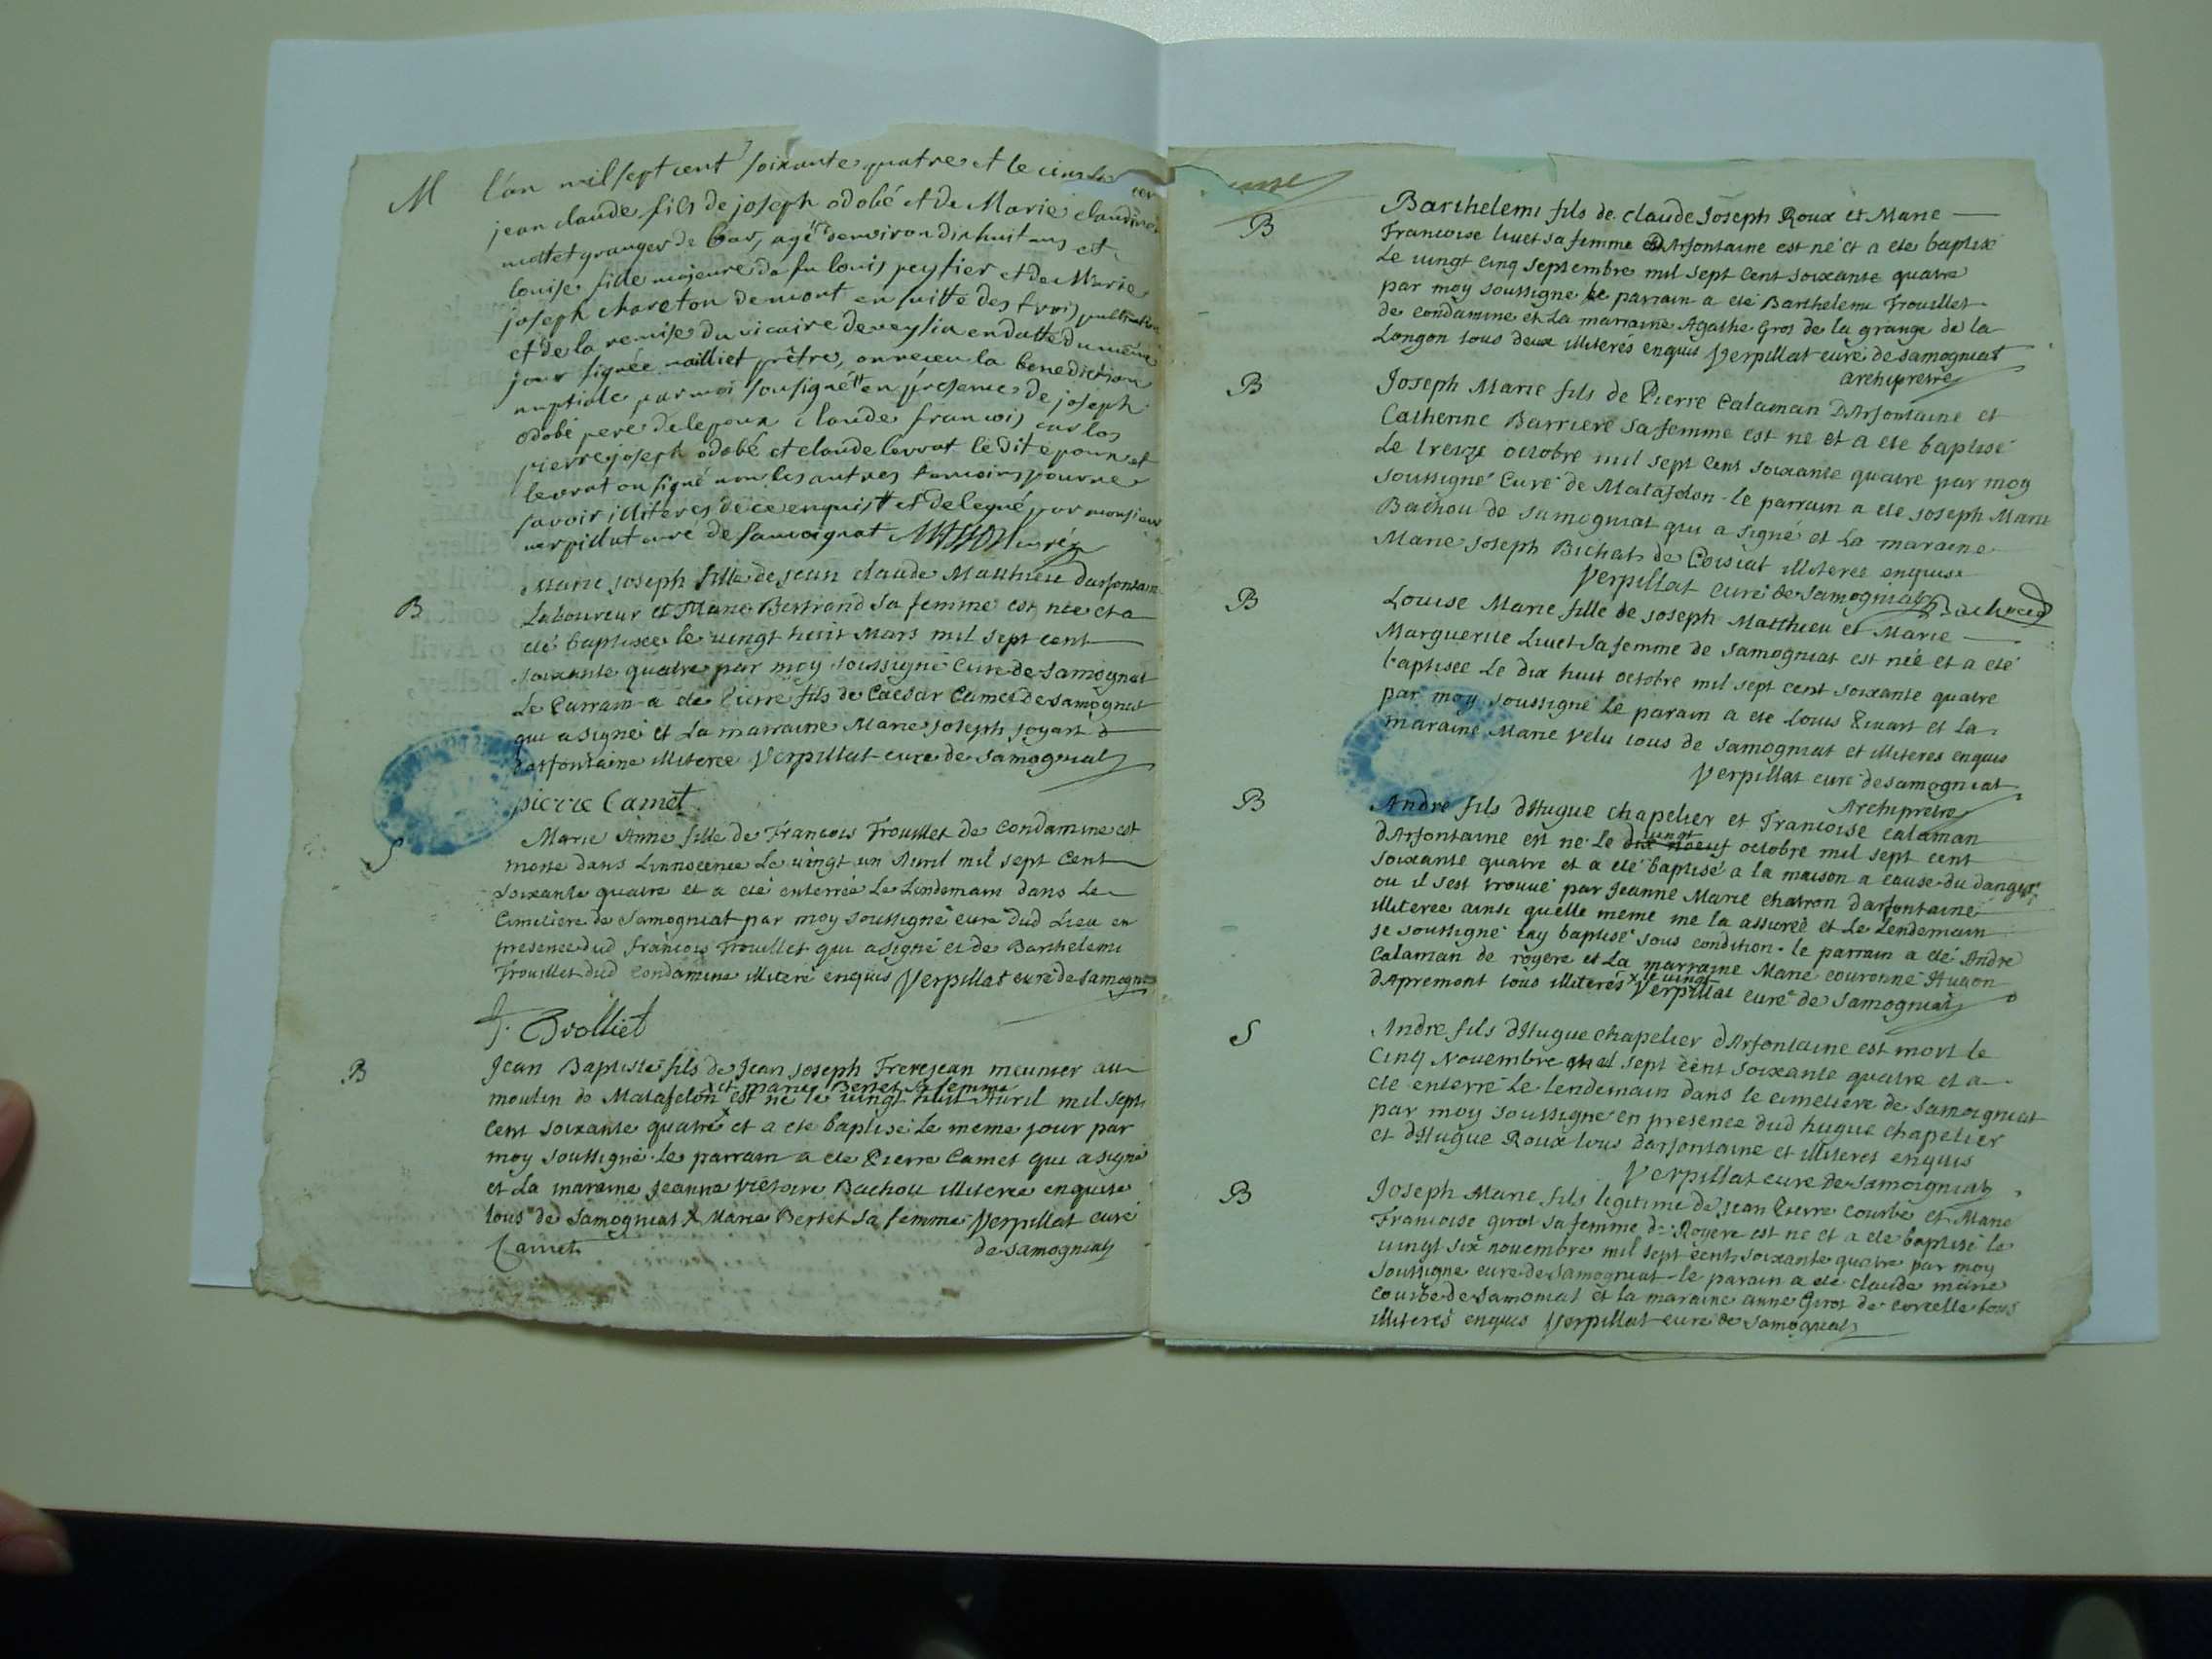 M
l'an mil sept cent soixante quatre et le
jean claude fils de joseph odobé et de Marie claudine
granger de bas, agé d'environ dix huit ans et
louise fille majeure de fu louis peysier et de Marie
joseph chareton demont en suitte des trois publications
et de la remise du vicaire de veyzia en datte du même
jour signée mailliet prêtre, on receu la benediction
nuptiale par moi sousigné en présence de joseph
odobé pere de lepoux claude francois carlos
pierre joseph odobé et claude levrat le dit epoux et
levrat on signé non les autres temoins pour ne
savoir illiteres de ce enquis et delegué par monsieur
verpillat curé de samoignat
B
Marie joseph fille de jean claude Matthieu darfontaine
Laboureur et Marie Bertrand sa femme est née et a
eté baptisée le vingt huit Mars mil sept cent
soixante quatre par moy soussigné Curé de Samognat
Le Parrain a ete Pierre fils de Caesar Camet de Samognat
qui a signé et La marraine Marie joseph joyart d
darfontaine illiteree Verpillat curé de Samognat
pierre Camet
S
Marie Anne fille de Francois Trouillet de Condamine est
morte dans Linnocence Le vingt un Avril mil sept Cent
Soixante quatre et a eté enterrée Le Lendemain dans Le
Cimetiere de Samogniat par moy soussigné curé dud Lieu en
presence dud francois Trouillet qui a signé et de Barthelemi
Trouillet dud Condamine illiteré enquis Verpillat curé de Samognat
B
Jean Baptiste fils de Jean Joseph Frerejean meunier au
x et marie Bertet sa femme
moulin de Matafelon est né le vingt huit Avril mil sept
Cent soixante quatre et a ete baptisé Le meme jour par
moy soussigné. Le parrain a ete Pierre Camet qui a signé
et La maraine Jeanne Victoire Bachou illiteree enquise
tous de Samogniat x Marie Bertet Sa femme Verpillat curé
Camet de samogniat
B
Barthelemi fils de Claude Joseph Roux et Marie
Francoise livet sa femme dArfontaine est né et a ete baptisé
Le vingt Cinq Septembre mil Sept Cent Soixante quatre
par moy soussigné Le parrain a eté Barthelemi Trouillet
de Condamine et La marraine Agathe Gros de la grange de la
Longon tous deux illiterés enquis Verpillat curé de samogniat
archipretre
B
Joseph Marie fils de Pierre Calaman DArfontaine et
Catherine Barriere Sa femme est né et a ete baptisé
Le treize octobre mil sept Cent soixante quatre par moy
soussigné Curé de Matafelon. le parrain a ete Joseph Marie
Bachou de Samogniat qui a signé et La maraine
Marie Joseph Bichat de Coisiat illiteree enquise
Verpillat Curé de Samogniat Bachoud
B
Louise Marie fille de Joseph Matthieu et Marie
Marguerite Livet Sa femme de Samogniat est née et a eté
baptisée Le dix huit octobre mil sept cent soixante quatre
par moy soussigné Le parain a eté Louis Evart et La
maraine Marie Velu tous de Samogniat et illiteres enquis
Verpillat curé de samogniat
Archipretre
B
André fils dHugue Chapelier et Francoise Calaman
vingt
dArfontaine est né Le dix noeuf octobre mil sept cent
soixante quatre et a eté baptisé a la maison a cause du danger
ou il sest trouvé par Jeanne Marie Chatron darfontaine
illiteree ainsi quelle meme me la assureé et Le Lendemain
Je soussigné Lay baptisé sous condition. le parrain a eté André
Calaman de royere et La marraine Marie Couronne Hugon
x le vingt
dApremont tous illiterés Verpillat curé de Samogniat
S
André fils dHugue Chapelier dArfontaine est mort le
Cinq Novembre mil sept cent soixante quatre et a
eté enterré Le Lendemain dans le Cimetiere de Samogniat
par moy soussigné en presence dud hugue Chapelier
et dHugue Roux tous darfontaine et illiteres enquis
Verpillat curé de Samoigniat
B
Joseph Marie fils legitime de Jean Pierre Courbe et Marie
Francoise Girot sa femme de Royere est né et a ete baptisé le
vingt six novembre mil sept cent soixante quatre par moy
Soussigné curé de Samogniat le parain a eté claude marie
Courbe de Samoniat et la maraine anne Girot de corcelle tous
illiterés enquis Verpillat curé de Samogniat